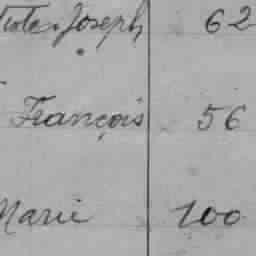 Joseph 62
François 56
Marie 100